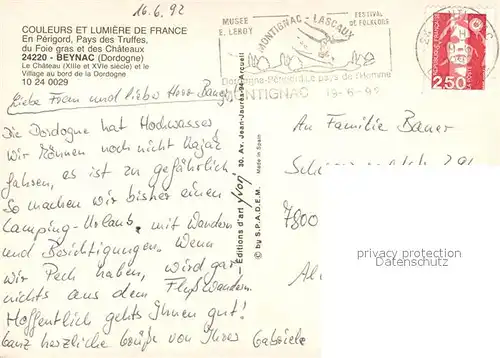 16.6.92
COULEURS ET LUMIÈRE DE FRANCE
En Périgord, Pays des Truffes,
du Foie gras et des Châteaux
24220 - BEYNAC (Dordogne)
Le Château (XIIIe et XVIe siècle) et le
Village au bord de la Dordogne
10 24 0029
MUSEE
E. LEROY
MONTIGNAC - LASCAUX
FESTIVAL
DE FOLKLORE
Dordogne-Périgord, le pays de l'Homme
MONTIGNAC 18-6-92
2,50
Liebe Frau und lieber Herr Bauer,
Die Dordogne hat Hochwasser,
wir können noch nicht Kajak
fahren, es ist zu gefährlich
So machen wir bisher einen
Camping-Urlaub mit Wandern
und Besichtigungen. Wenn
wir Pech haben, wird gar
nichts aus dem Flußwandern.
Hoffentlich gehts Ihnen gut!
Ganz herzliche Grüße von Ihrer Gabriele
Editions d'art yvon 30, Av. Jean-Jaurès-94 Arcueil
© by S.P.A.D.E.M. Made in Spain
An Familie Bauer
7800
privacy protection
Datenschutz